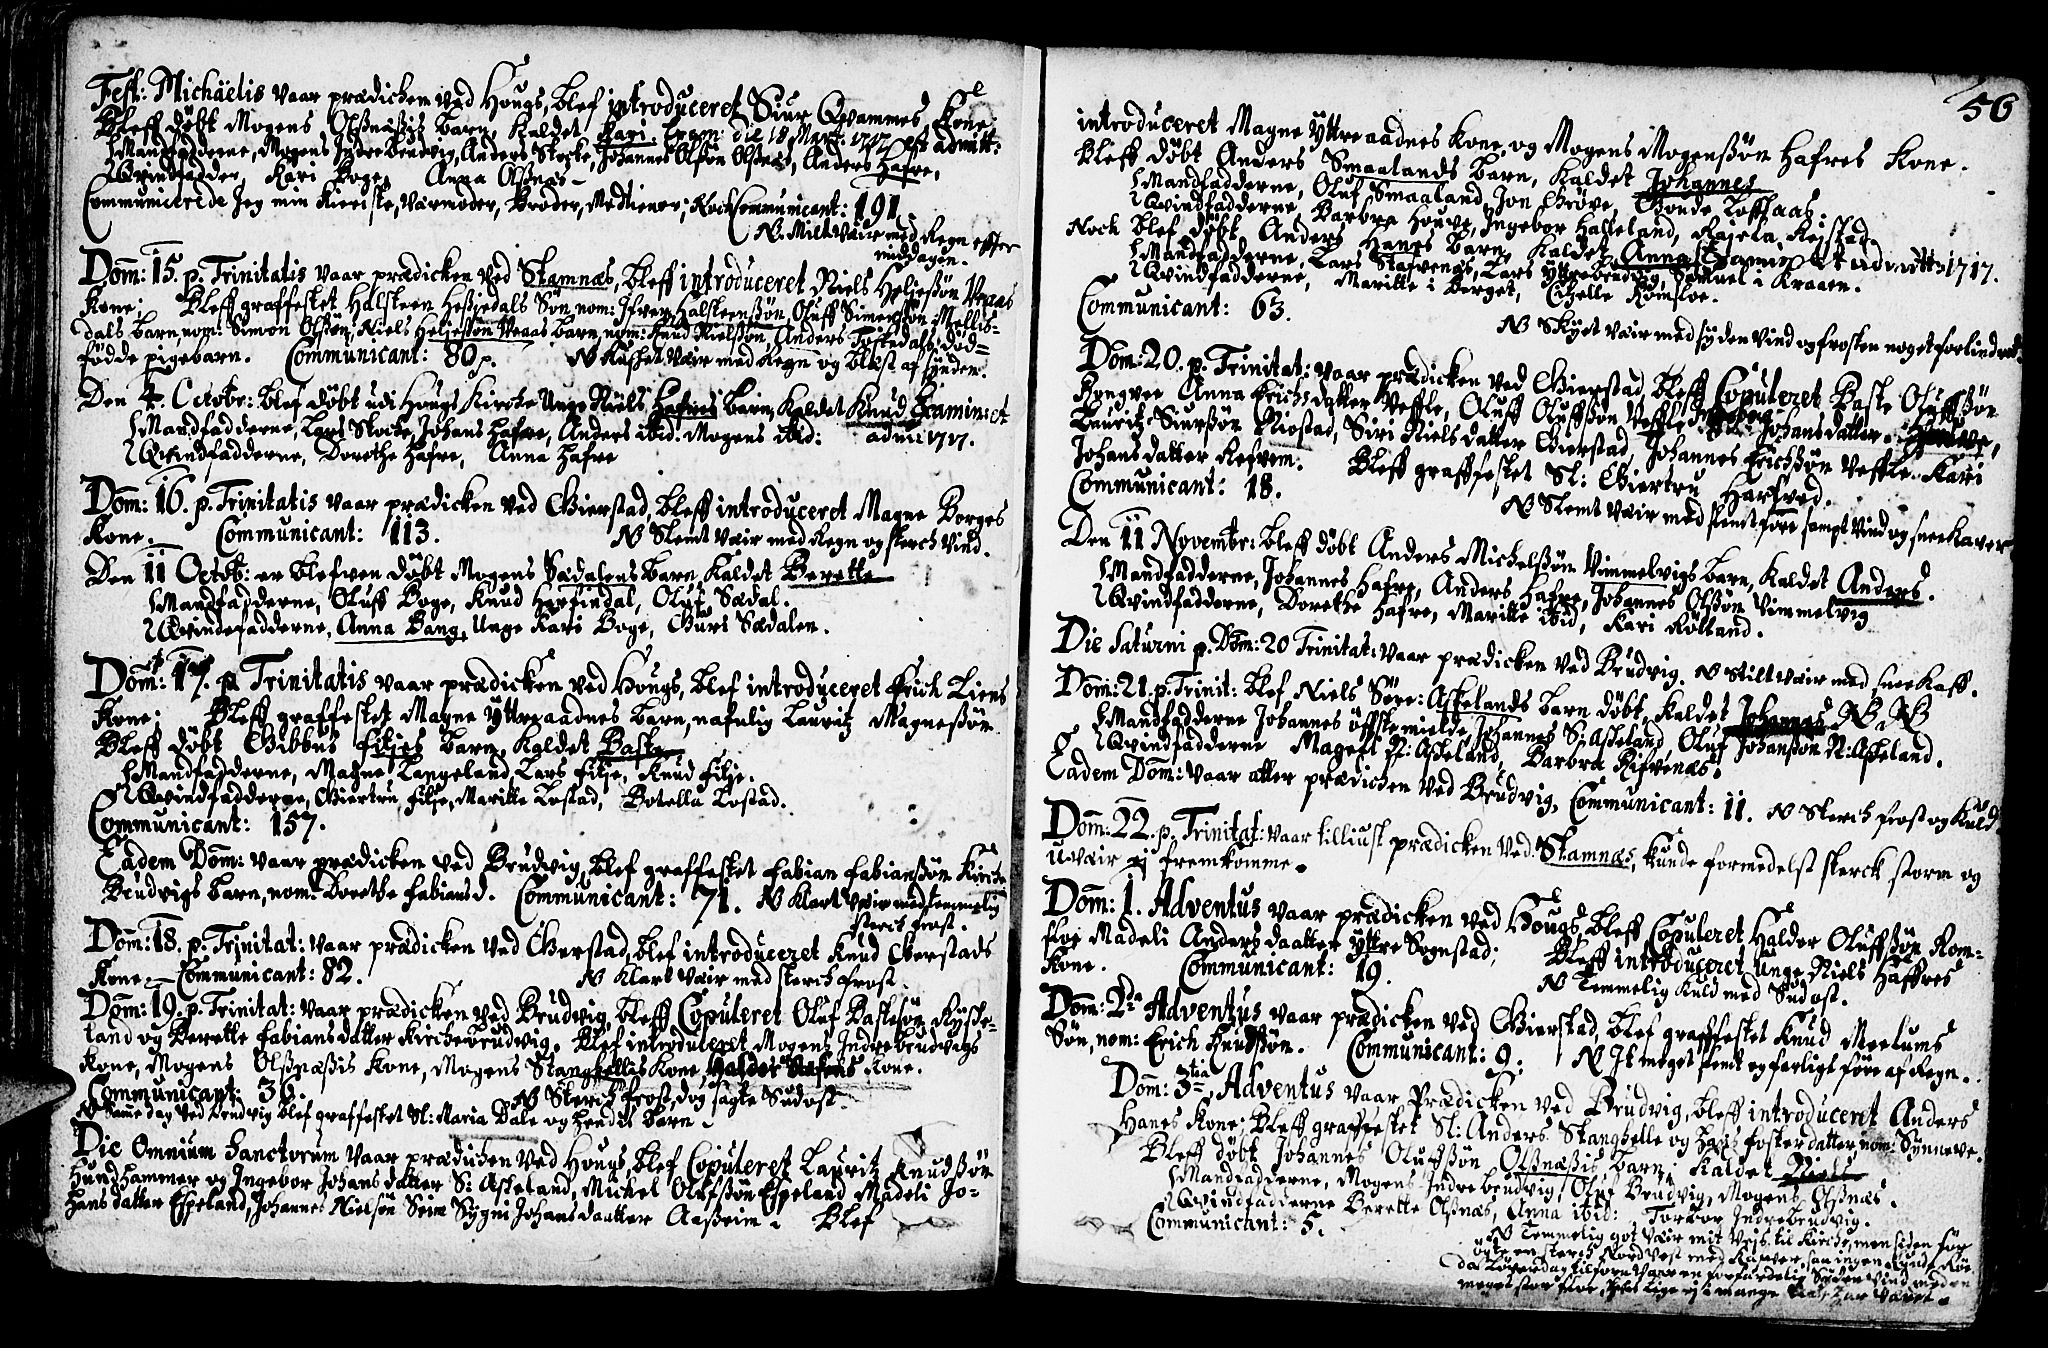 Fest: Michäelis vaar prædicken ved Hougs, blef introduceret Siur Qvammes Kone.
Bleff døbt Mogens Olßnæßis barn, Kaldet Kari. Exam: die 18 Mart: 1717 est admitt:
Mandfadderne, Mogens Indrebrudvig, Anders Skocke, Johannes Olßøn Olßnæs, Anders Hafre,
Qvindfadder, Kari Boge, Anna Olßnæs
Communicerede Jeg min Kieriste, Værmoder, Broder, Medtiener, Noch Communicant: 191.
N. Milt Vair med Regn efter
middagen.
Dom: 15. p. Trinitatis vaar prædicken ved Stamnæs, bleff introduceret Niels Heljeßøn Vraas
Kone; Bleff graffestet Halsteen Heßiedals Søn, nom: Ifver Halsteenßøn, Oluff Simenßøn Mellis-
dals barn, nom: Simon Olßøn, Niels Heljeßøn Vraas barn, nom: Knud Nielßøn, Anders Toskedals død-
fødde pigebarn. Communicant: 80. NB Rusket Vair med Regn og blæst af synden.
Den 4. Octobr: blef døbt udi Hougs Kircke Unge Niels Hafres barn Kaldet Knud. Examin: et
Mandfadderne, Lars Skocke, Johans Hafre, Anders ibid. Mogens ibid: admi: 1717.
Qvindfadderne, Dorethe Hafre, Anna Hafre
Dom: 16. p. Trinitatis vaar prædicken ved Gierstad, bleff introduceret Magne Borges
Kone. Communicant: 113. NB Slemt Vair med Regn og sterch Vind.
Den 11 Octob: er blefven døbt Mogens Sædalens barn, Kaldet Berette
Mandfadderne, Oluff Boge, Knud Herfindal, Oluf Sædal.
Qvindefadderne, Anna Bang, Unge Kari Boge, Guri Sædalen.
Dom: 17. p Trinitatis vaar prædicken ved Hougs, blef introduceret Erich Liens
Kone; Bleff graffestet Magne Yttreaadnes barn, nafnlig Lauritz Magneßøn
Bleff døbt Gibbus Filjes barn, Kaldet Baste
Mandfadderne, Magne Langeland, Lars Filje, Knud Filje.
Qvindfadderne, Giertru Filje, Maritte Lostad, Botella Lostad.
Communicant: 157.
Eadem Dom: vaar prædicken ved Brudvig, blef graffestet Fabian Fabianßøn Kirche
Brudvigs barn, nom: Dorethe Fabians d. Communicant: 71. NB Klart Vair med temmelig
sterch frost.
Dom: 18. p. Trinitat: vaar prædicken ved Gierstad, blef introduceret Knud Gierstads
Kone. Communicant: 82. NB Klart Vair med sterch frost.
Dom: 19. p. Trinitat: vaar prædicken ved Brudvig, bleff Copuleret Oluf Basteßøn Rysse-
land og Berette Fabians datter Kirchebrudvig. Blef introduceret Mogens Indrebrudvigs
Kone, Mogens Olßnæßis Kone, Mogens Stanghellis Kone, Halder Kone.
Communicant: 36. NB Sterch frost, dog sagte Sudost.
NB Same dag ved Brudvig blef graffestet Sl: Maria Dale og hendis barn.
Die Omnium Sanctorum vaar prædicken ved Hougs, blef Copuleret Lauritz Knudßøn
Hundhammer og Ingebor Johans datter S: Askeland, Michel Olufßøn Espeland Madeli Jo-
hans datter Espeland, Johannes Nielßøn Seim Sygni Johans daatter Aasheim. Blef
56
introduceret Magne Yttreaadnes Kone, og Mogens Mogenßøn Hafres Kone.
Bleff døbt Anders Smaalands barn, Kaldet Johannes
Mandfadderne, Oluf Smaaland, Jon Grøve, Gonde Loftaas.
Qvindfadderne Barbra Houge, Ingebor Hasseland, Rasela Reistad
Noch blef døbt Anders Hanes barn, Kaldet Anna, Examin: et admitt: 1717.
Mandfadderne, Lars Stafvenæs, Lars Yttrebrudvig, Samuel i Kraaen.
Qvindfadderne, Maritte i Berget, Citzelle Romsloe.
Communicant: 63.
NB Skyet Vair med synden Vind og frosten noget forlindred.
Dom: 20. p. Trinitat: vaar prædicken ved Gierstad, bleff Copuleret Baste Oluffßøn
Kongvee Anna Erichs datter Veffle, Oluff Oluffßøn Veffle Johans datter
Lauritz Siurßøn Miostad, Siri Niels datter Gierstad, Johannes Erichßøn Veffle. Kari
Johans datter Refvem. Bleff graffestet Sl: Giertru Harfved.
Communicant: 18.
NB Slemt Vair med slemt føre sampt Vind og snee Kaver
Den 11 Novembr: bleff døbt Anders Michelßøn Vimmelvigs barn, Kaldet Anders.
Mandfadderne, Johannes Hafre, Anders Hafre, Johannes Olßøn Vimmelvig
Qvindfadderne, Dorethe Hafre, Maritte ibid, Kari Rølland.
Die Saturni p. Dom: 20 Trinitat: vaar prædicken ved Brudvig. NB Stilt Vair med snee Kaff.
Dom: 21. p. Trinit: blef Niels Søre: Askelands barn døbt, Kaldet Johannes NB NB
Mandfadderne Johannes Øfstemielde, Johannes S: Askeland, Oluf Johanßøn N: Askeland.
Qvindfadderne Magell S: Askeland, Barbra Rifvenæs.
Eadem Dom: vaar atter prædicken ved Brudvig, Communicant: 11. NB Sterch frost og Kuld
Dom: 22. p. Trinitat: vaar tilliust prædicken ved Stamnæs, kunde formedelst sterck storm og
uvair ej fremkomme.
Dom: 1. Adventus vaar prædicken ved Hougs, bleff Copuleret Haldor Oluffßøn Rom-
sloe Madeli Anders daatter Yttre Sognstad; Bleff introduceret Unge Niels Haffres
Kone. Communicant: 19. NB Temmelig Kuld med Sudost.
Dom: 2da Adventus vaar prædicken ved Gierstad, blef graffestet Knud Meelums
Søn, nom: Erich Knudßøn. Communicant: 9. NB It meget slemt og farligt føre af Regn.
Dom: 3tia Adventus vaar Prædicken ved Brudvig, bleff introduceret Anders
Hanes Kone; Bleff graffestet Sl: Anders Stanghelle og hans foster datter nom: Synneve.
Bleff døbt Johannes Olufßøn Olßnæßis barn, Kaldet Niels
Mandfadderne, Mogens Indrebrudvig, Oluf Brudvig, Mogens Olßnæs.
Qvindfadderne Berette Olßnæs, Anna ibid: Torbor Indrebrudvig.
Communicant: 5.
NB Temmelig got Vair mit Vejs til Kirche, men siden før
øgte en sterch Nord Vest med Kaver, saa ingen Kunde Roe
da Løverdag tilforn Var en forfærdelig Synden Vind med en
meget stor floe, lige ej i mange Aar har været.